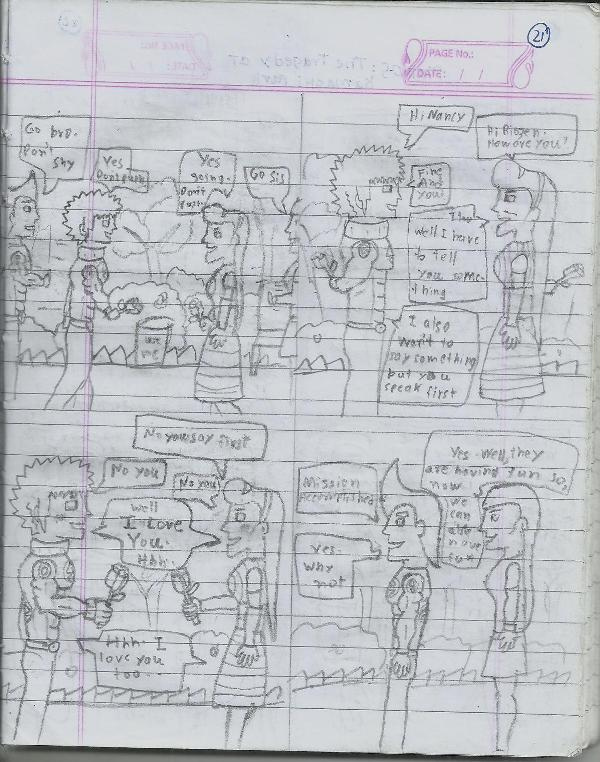 21
PAGE No.:
DATE: / /
Go bro.
Don't
shy
Yes
Dont push
Yes
going.
Don't
push
Go sis
use
me
Hi Nancy
Hi Biogen.
How are you?
Fine
And
you
well I have
to tell
you some-
thing
I also
want to
say something
but you
speak first
No you say first
No you
No you
Well
I Love
You.
Hhh.
Hhh. I
love you
too..
Mission
Accomplished
Yes. Well, they
are having fun so,
now we
can
also
have
fun
Yes.
Why
not